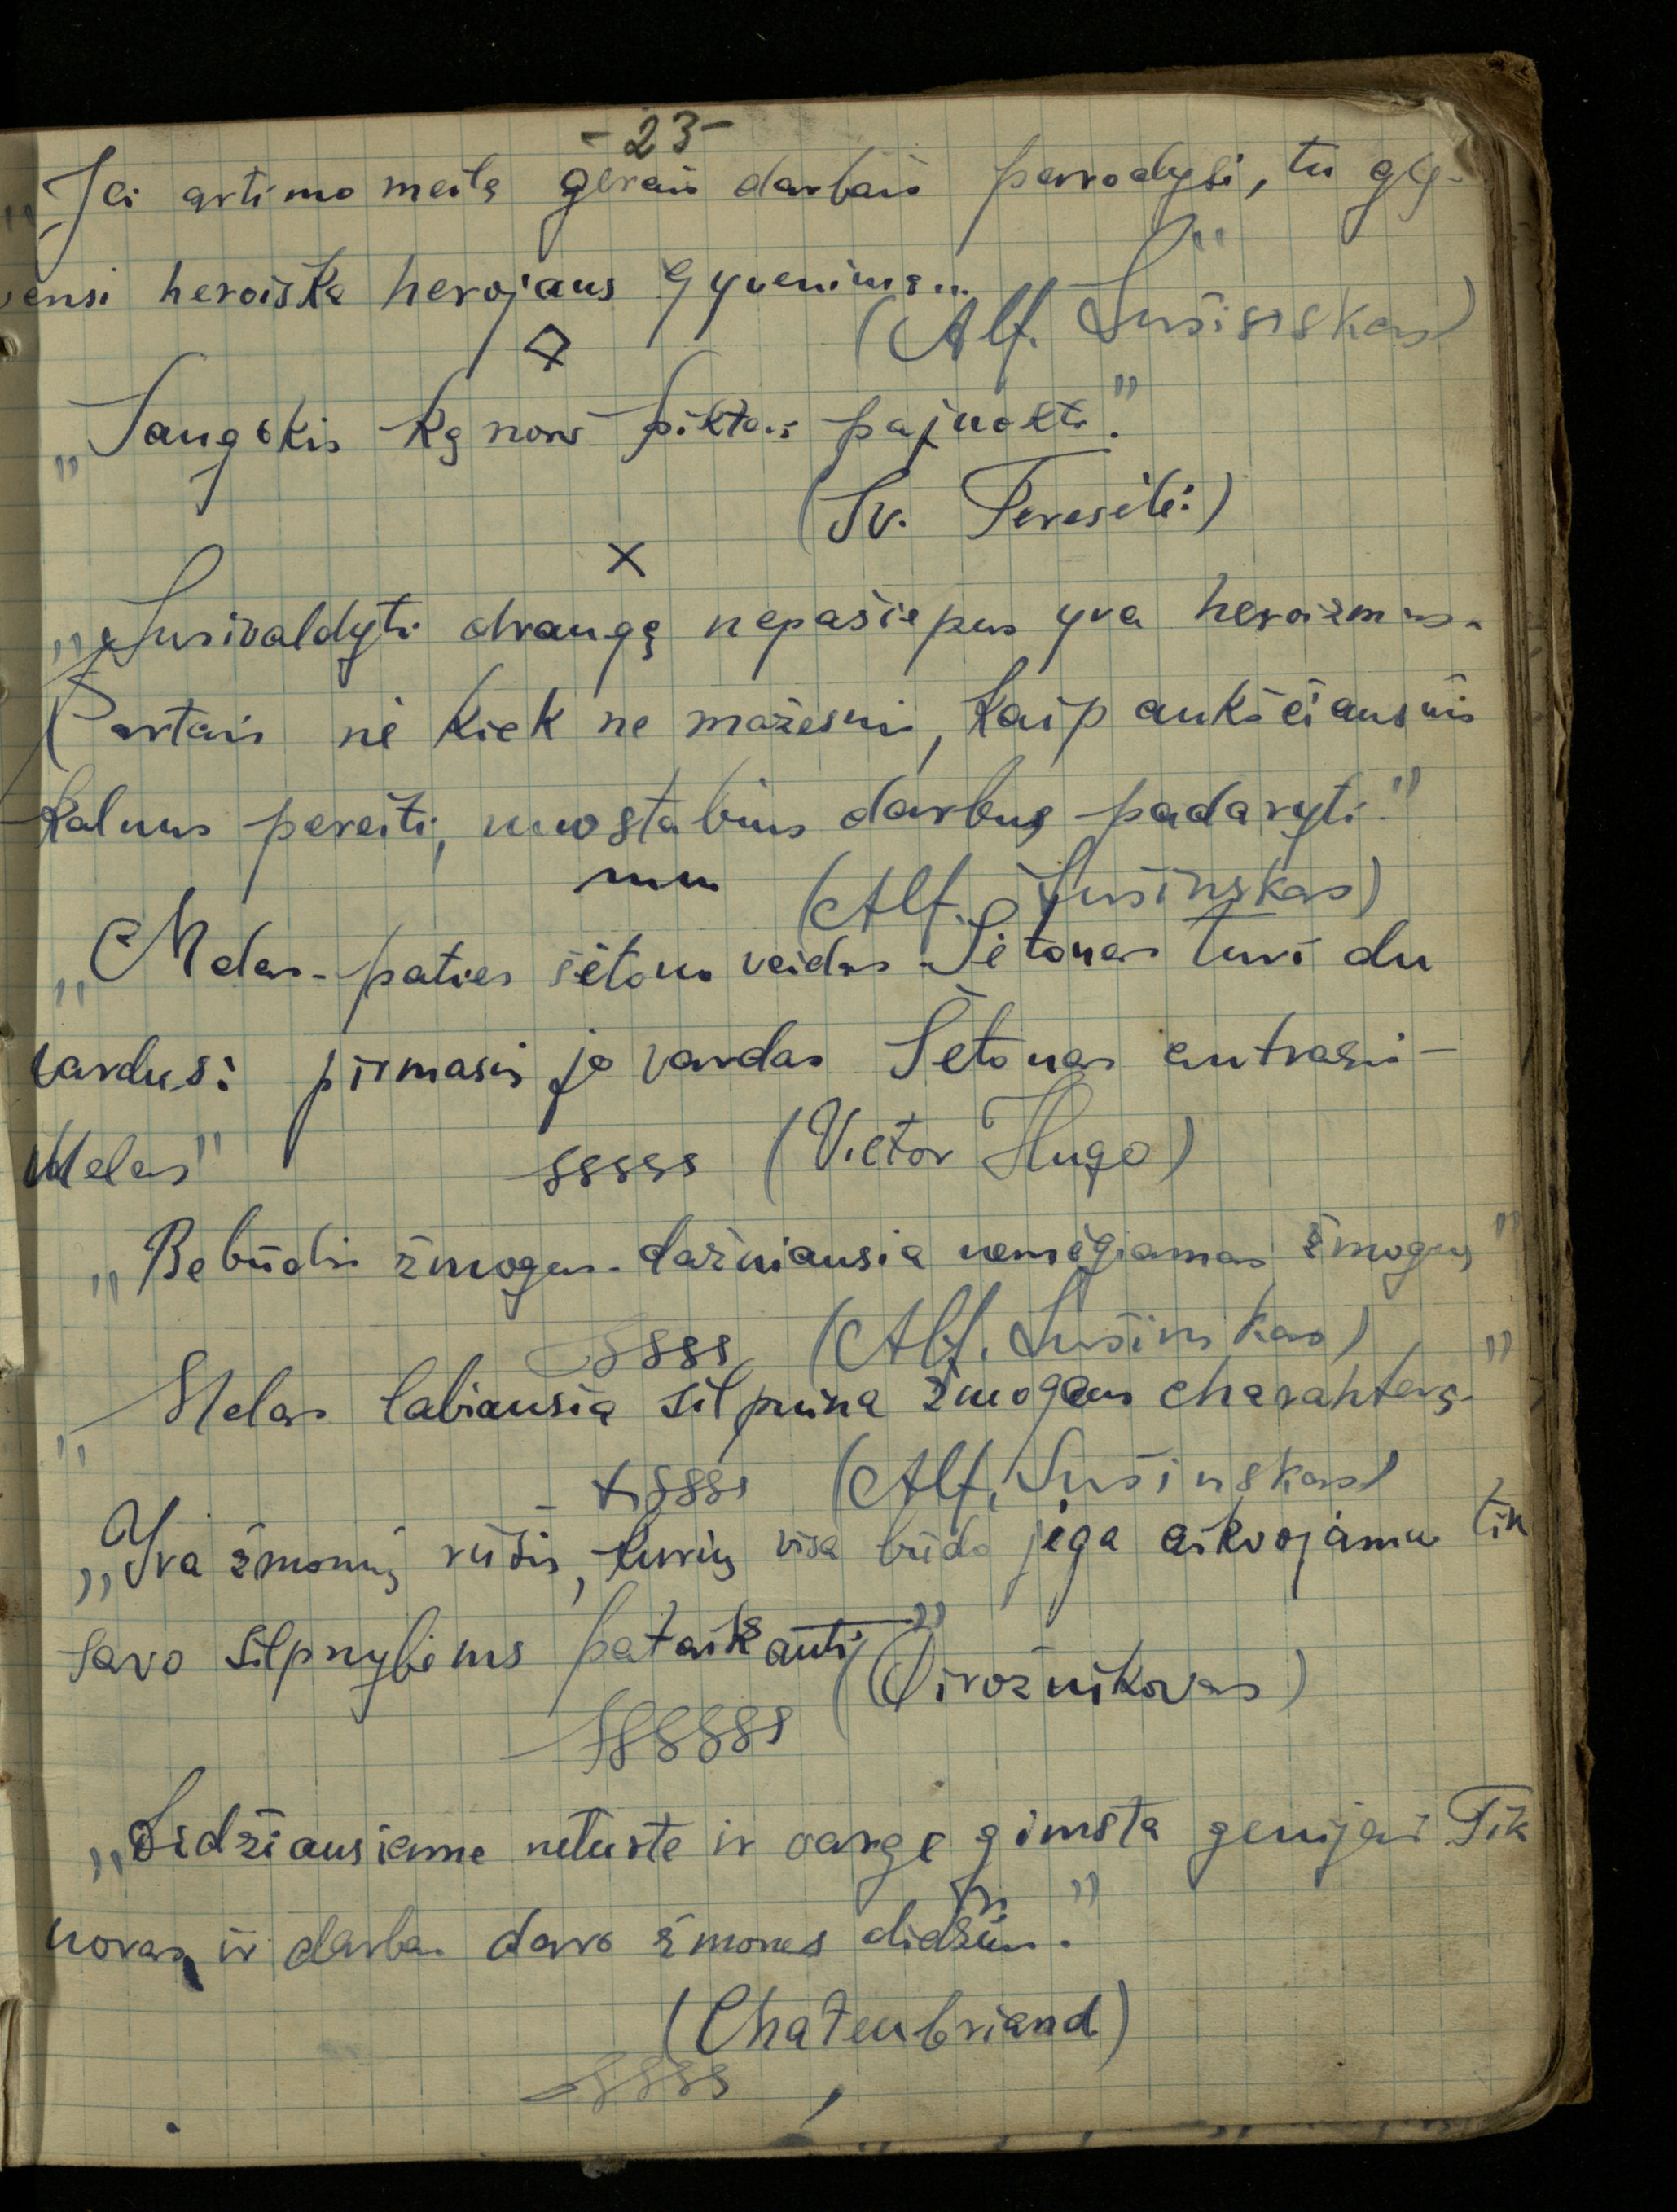 -23-
„Jei artimo meilę gerais darbais parodysi, tu gy-
vensi heroišką herojaus gyvenimą..."
(Alf. Sušisiskas)
„Saugokis ką nors piktais pajuokti."
(Sv. Teresėlė)
x
„Susivaldyti draugą nepašiepus yra heroizmas.
Partais nė kiek ne mažesnis, kaip aukščiausius
kalnus pereiti, nuostabius darbus padaryti."
(Alf. Sušinskas)
„Melas - paties šėtono veidas. Šėtonas turi du
vardus: pirmasis jo vardas Šėtonas antrasis -
Melas"
(Victor Hugo)
„Bebūdis žmogus - dažniausia nemėgiamas žmogus"
(Alf. Sušinskas)
„Melas labiausia silpnina žmogaus charakterą."
(Alf. Sušinskas)
„Yra žmonių rūšis, kurių visa būdo jėga aikvojama tik
savo silpnybėms pataikauti"
(Dirožnikovas)
„Didžiausiame neturte ir varge gimsta genijai Tik
noras ir darbas daro žmones didžiais."
(Chateubriand)